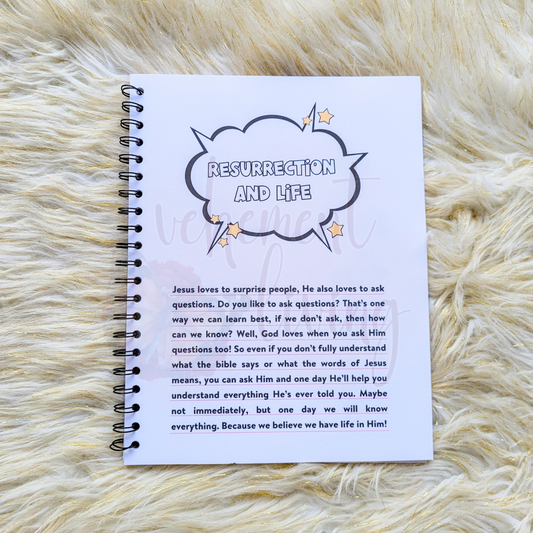 RESURRECTION
AND LIFE
vehement
beauty
Jesus loves to surprise people, He also loves to ask
questions. Do you like to ask questions? That's one
way we can learn best, if we don't ask, then how
can we know? Well, God loves when you ask Him
questions too! So even if you don't fully understand
what the bible says or what the words of Jesus
means, you can ask Him and one day He'll help you
understand everything He's ever told you. Maybe
not immediately, but one day we will know
everything. Because we believe we have life in Him!